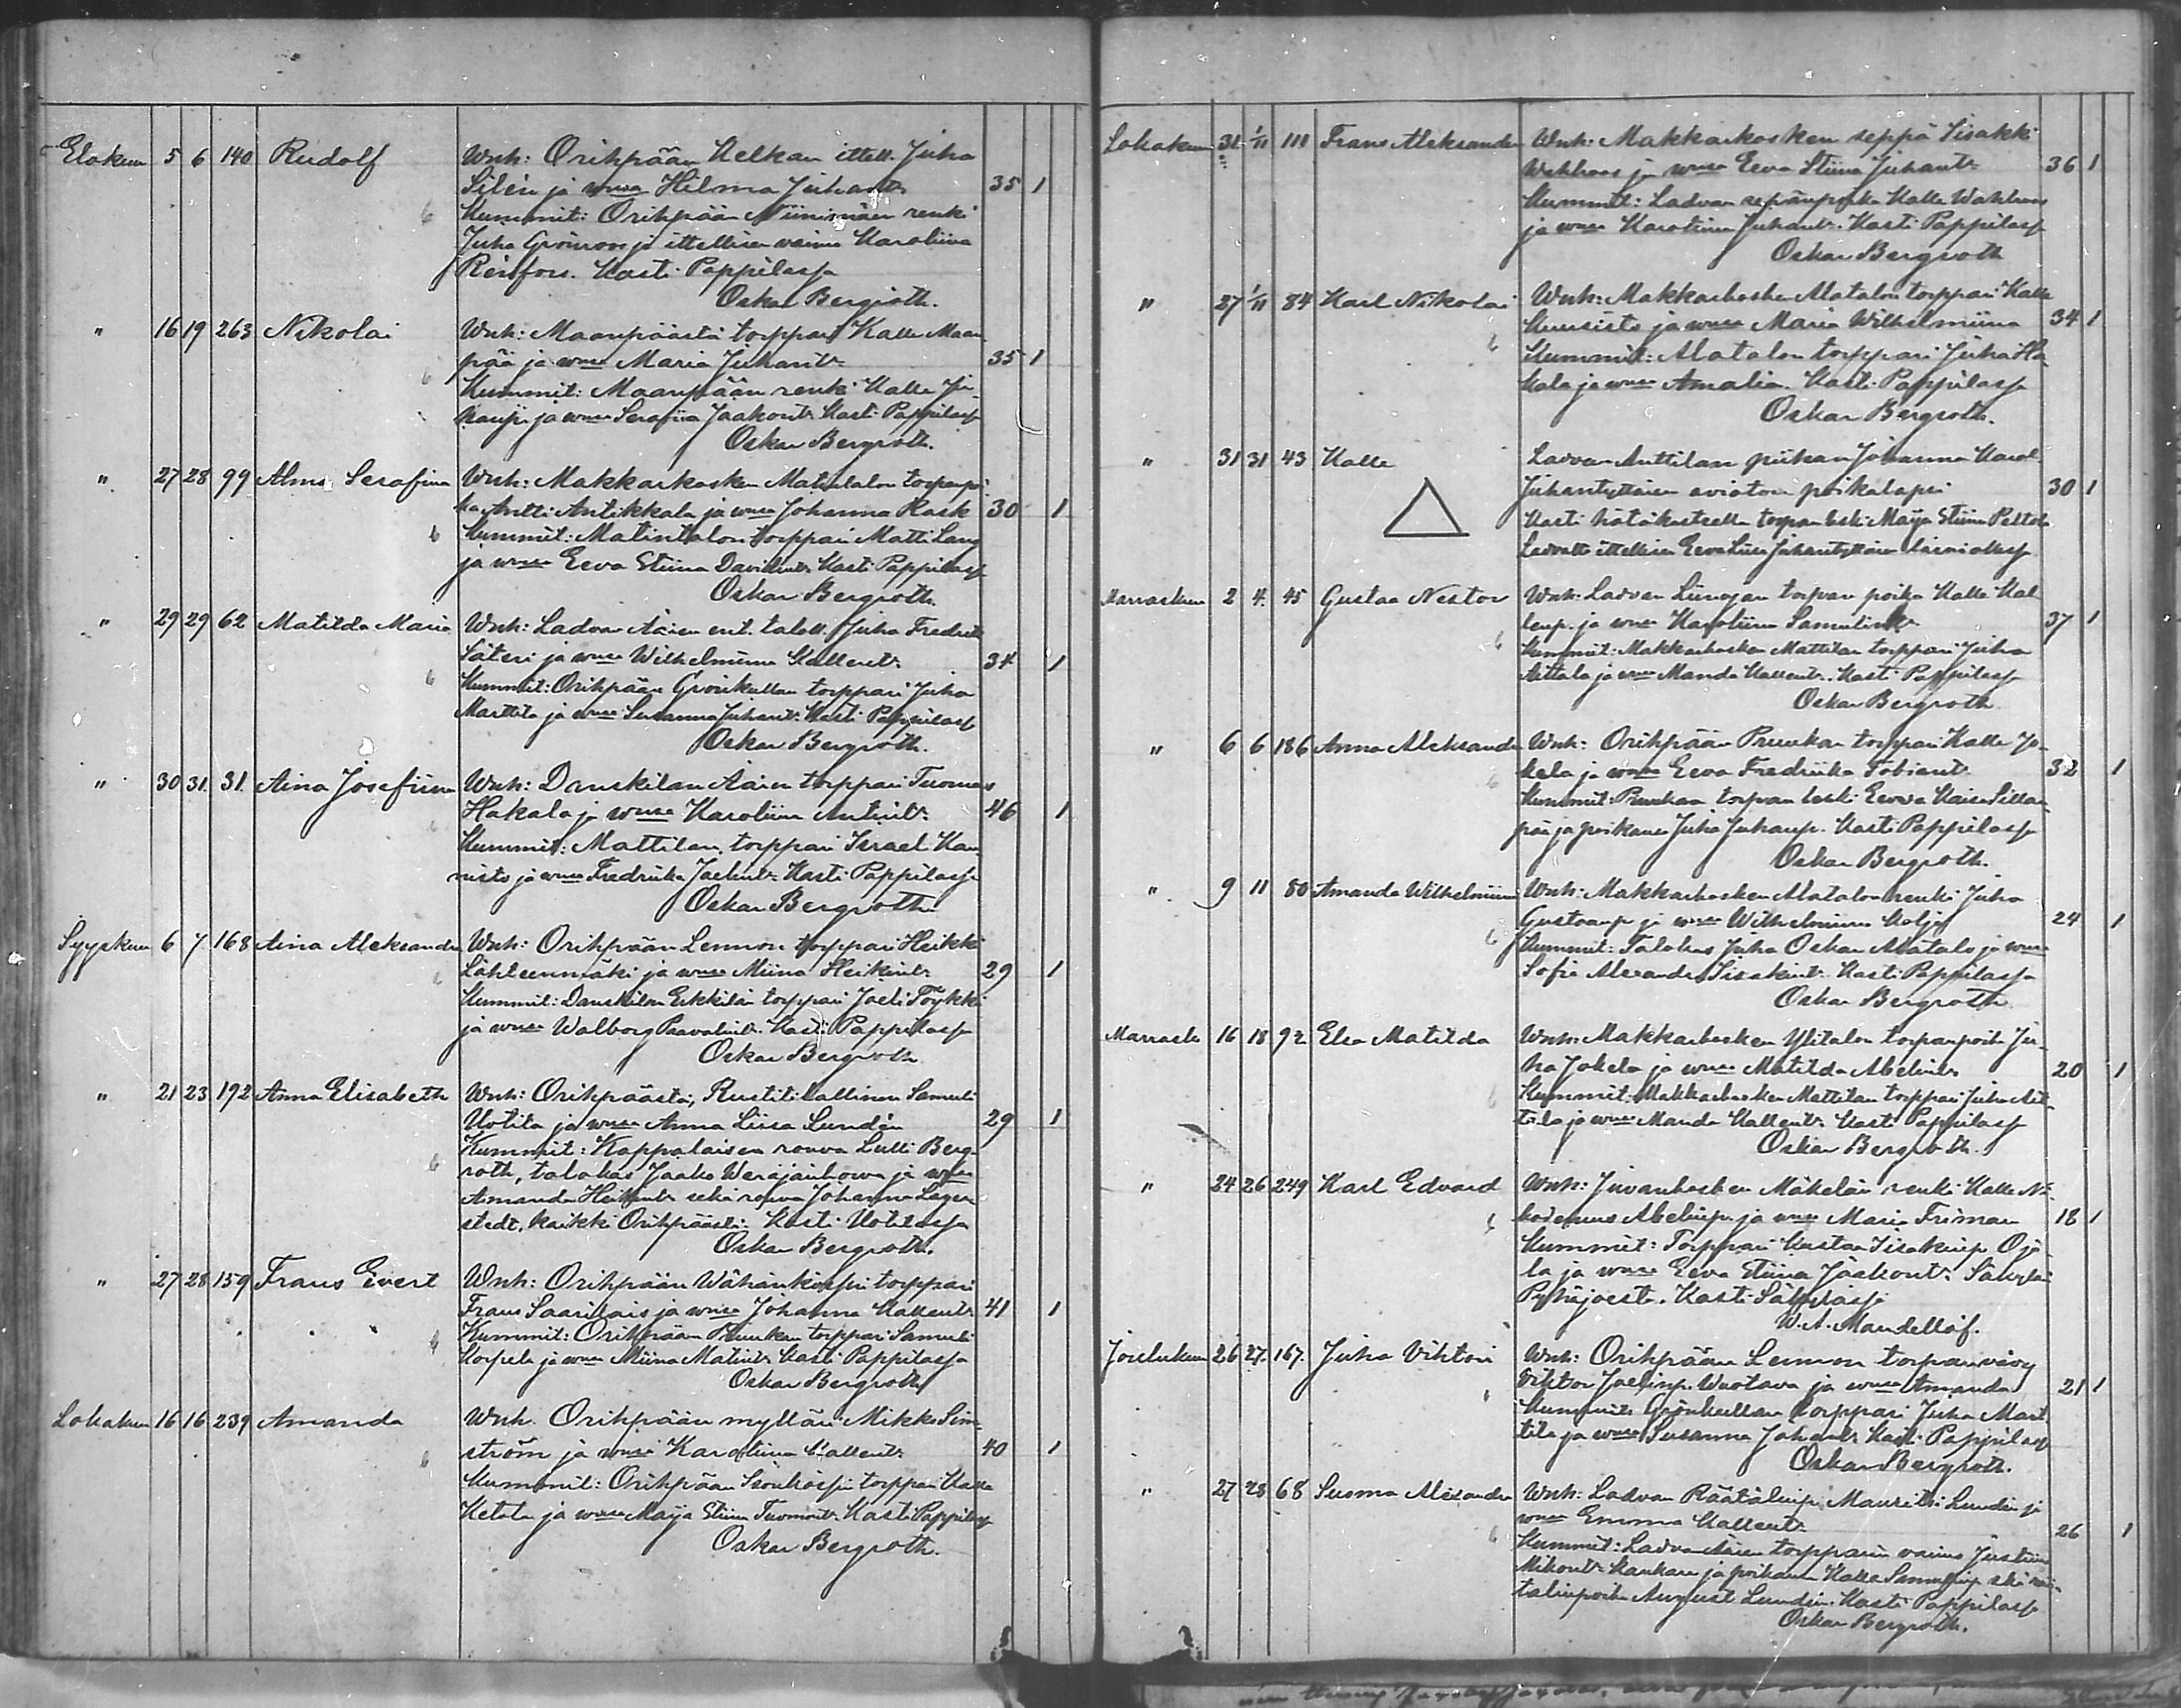 Elokuu 5 6 140 Rudolf Wnh: Orihpään Kelkan ittell. Juha
Silén ja wmsa Hilma Juhant. 35 1
Kummit: Orihpään Niinimäen renki
Juha Grönroos ja ittellisen vaimo Karoliina
Renfors. Kasti Pappilassa
Oskar Bergroth.
" 16 19 263 Nikolai Wnh: Maanpäästä torppari Kalle Maan
pää ja wmsa Maria Juhant. 35 1
Kummit: Maanpään renki Kalle
ja wmsa Serafiia Jaakont. Kasti Pappilassa
Oskar Bergroth.
" 27 28 99 Alma Serafina Wnh: Makkarkosken torpanpoi
ka Antti Antikkala ja wmsa Johanna Rask 30 1
Kummit: Matintalon torppari Matti Lang
ja wmsa Eeva Stiina Davidint. Kasti Pappilassa
Oskar Bergroth.
" 29 29 62 Matilda Maria Wnh: Ladvan Äären ent. taloll. Juha Fredrik
Säteri ja wmsa Wilhelmiina Kallent. 34 1
Kummit: Orihpään torppari Juha
Marttila ja wmsa Susanna Juhant. Kasti Pappilassa
Oskar Bergroth.
" 30 31 31 Aina Josefiina Wnh: Danskilan Äären torppari Tuomas
Hakala ja wmsa Karoliina Antint. 46 1
Kummit: Mattilan torppari Israel Kan
nisto ja wmsa Fredrika Joelint. Kasti Pappilassa
Oskar Bergroth.
Syyskuu 6 7 168 Aina Aleksandra Wnh: Orihpään Lemmon torppari Heikki
Lähteenmäki ja wmsa Miina Heikint. 29 1
Kummit: Danskilan Erkkilän torppari Joeli Töykki
ja wmsa Walborg Paavalint. Kasti Pappilassa
Oskar Bergroth
" 21 23 192 Anna Elisabeth Wnh: Orihpäästä, Rustitilallinen Samuli
Uotila ja wmsa Anna Liisa Lundén 29 1
Kummit: Kappalaisen rouva Lulli Berg-
roth, talokas Jaako ja wmsa
Amanda Heikint. sekä rouva Johanna Lager
stedt, kaikki Orihpäästä. Kasti Uotilassa
Oskar Bergroth.
" 27 28 159 Frans Evert Wnh: Orihpään Wähänkorpi torppari
Frans Saarilais ja wmsa Johanna Kallent. 41 1
Kummit: Orihpään Pruukan torppari Samuli
Korpela ja wmsa Miina Matint. Kasti Pappilassa
Oskar Bergroth
Lokakuu 16 16 239 Amanda Wnh. Orihpään mylläri Mikko Sim-
ström ja wmsa Karoliina Kallent. 40 1
Kummit: Orihpään Isonkorpi torppari Kalle
Ketola ja wmsa Maija Stiina Tuomont. Kasti Pappilassa
Oskar Bergroth.
Lokakuu 31 1/11 111 Frans Aleksander Wnh: Makkarkosken seppä Iisakki
Wahlroos ja wmsa Eeva Stiina Juhant. 36 1
Kummit: Ladvan sepänpoika Kalle Wahlroos
ja wmsa Karoliina Juhant. Kasti Pappilassa
Oskar Bergroth
" 27 1/11 84 Karl Nikolai Wnh: Makkarkosken Alatalon torppari Kalle
Kuusisto ja wmsa Maria Wilhelmiina 34 1
Kummit: Alatalon torppari Juha Ha
kala ja wmsa Amalia. Kasti Pappilassa
Oskar Bergroth.
" 31 31 43 Kalle Ladvan Anttilan piikan Johanna Karol.
Juhantyttären aviotoin poikalapsi 30 1
Kasti hätäkasteella torpan leski Maija Stiina Peltola
Ladvalta ittellisen Eeva Liisa Juhantyttären läsnä ollessa
Marraskuu 2 4 45 Gustaa Nestor Wnh: Ladvan Liinojan torpan poika Kalle Kal
lenp. ja wmsa Karoliina Samulint. 37 1
Kummit: Makkarkosken Mattilan torppari Juha
Aittala ja wmsa Manda Kallent. Kasti Pappilassa
Oskar Bergroth
" 6 6 186 Anna Aleksandra Wnh: Orihpään Pruukan torppari Kalle Jo-
kela ja wmsa Eeva Fredriika Tobiant. 32 1
Kummit: Pruukan torpan leski Eeva Kaisa Sillan
pää ja poikansa Juha Juhanp. Kasti Pappilassa
Oskar Bergroth.
" 9 11 80 Amanda Wilhelmiina Wnh: Makkarkosken Alatalon renki Juha
Gustaanp. ja wmsa Wilhelmiina 24 1
Kummit: Talokas Juha Oskar Alatalo ja wmsa
Sofia Alexandra Iisakint. Kasti Pappilassa
Oskar Bergroth
Marrask. 16 18 92 Elsa Matilda Wnh: Makkarkosken Ylitalon torpanpoika Ju-
ha Jokela ja wmsa Matilda Abelint. 20 1
Kummit: Makkarkosken Mattilan torppari Juha Ait-
tala ja wmsa Manda Kallent. Kasti Pappilassa
Oskar Bergroth.
" 24 26 249 Karl Edvard Wnh: Juvankosken Mäkelän renki Kalle Ni-
kodemus Abelinp. ja wmsa Maria Friman 18 1
Kummit: Torppari Kustaa Iisakinp. Oja-
la ja wmsa Eeva Stiina Jaakont. Säkylän
Pyhäjoesta. Kasti Säkylässä
W. A. Mandellöf.
Joulukuu 26 27. 167. Juha Viktori Wnh: Orihpään Lemmon torpanvävy
Viktor Joelinp. Wuotava ja wmsa Amanda 21 1
Kummit: Grönkullan torppari Juha Mart
tila ja wmsa Susanna Johant. Kasti Pappilassa
Oskar Bergroth.
" 27 28 68 Susma Alexandra Wnh: Ladvan Räätälinp. Mauritsi Lundén ja
wmsa Emma Kallent. 26 1
Kummit: Ladvan Äären torpparin vaimo Justiina
Mikont. Kankare ja poikansa Kalle Samulinp. sekä rää-
tälinpoika August Lundén. Kasti Pappilassa
Oskar Bergroth.